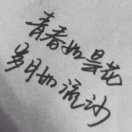 青春如昙花
岁月如流沙